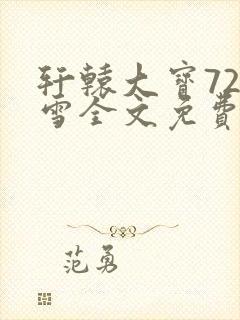 轩辕大宝72
雪全文免费
范勇